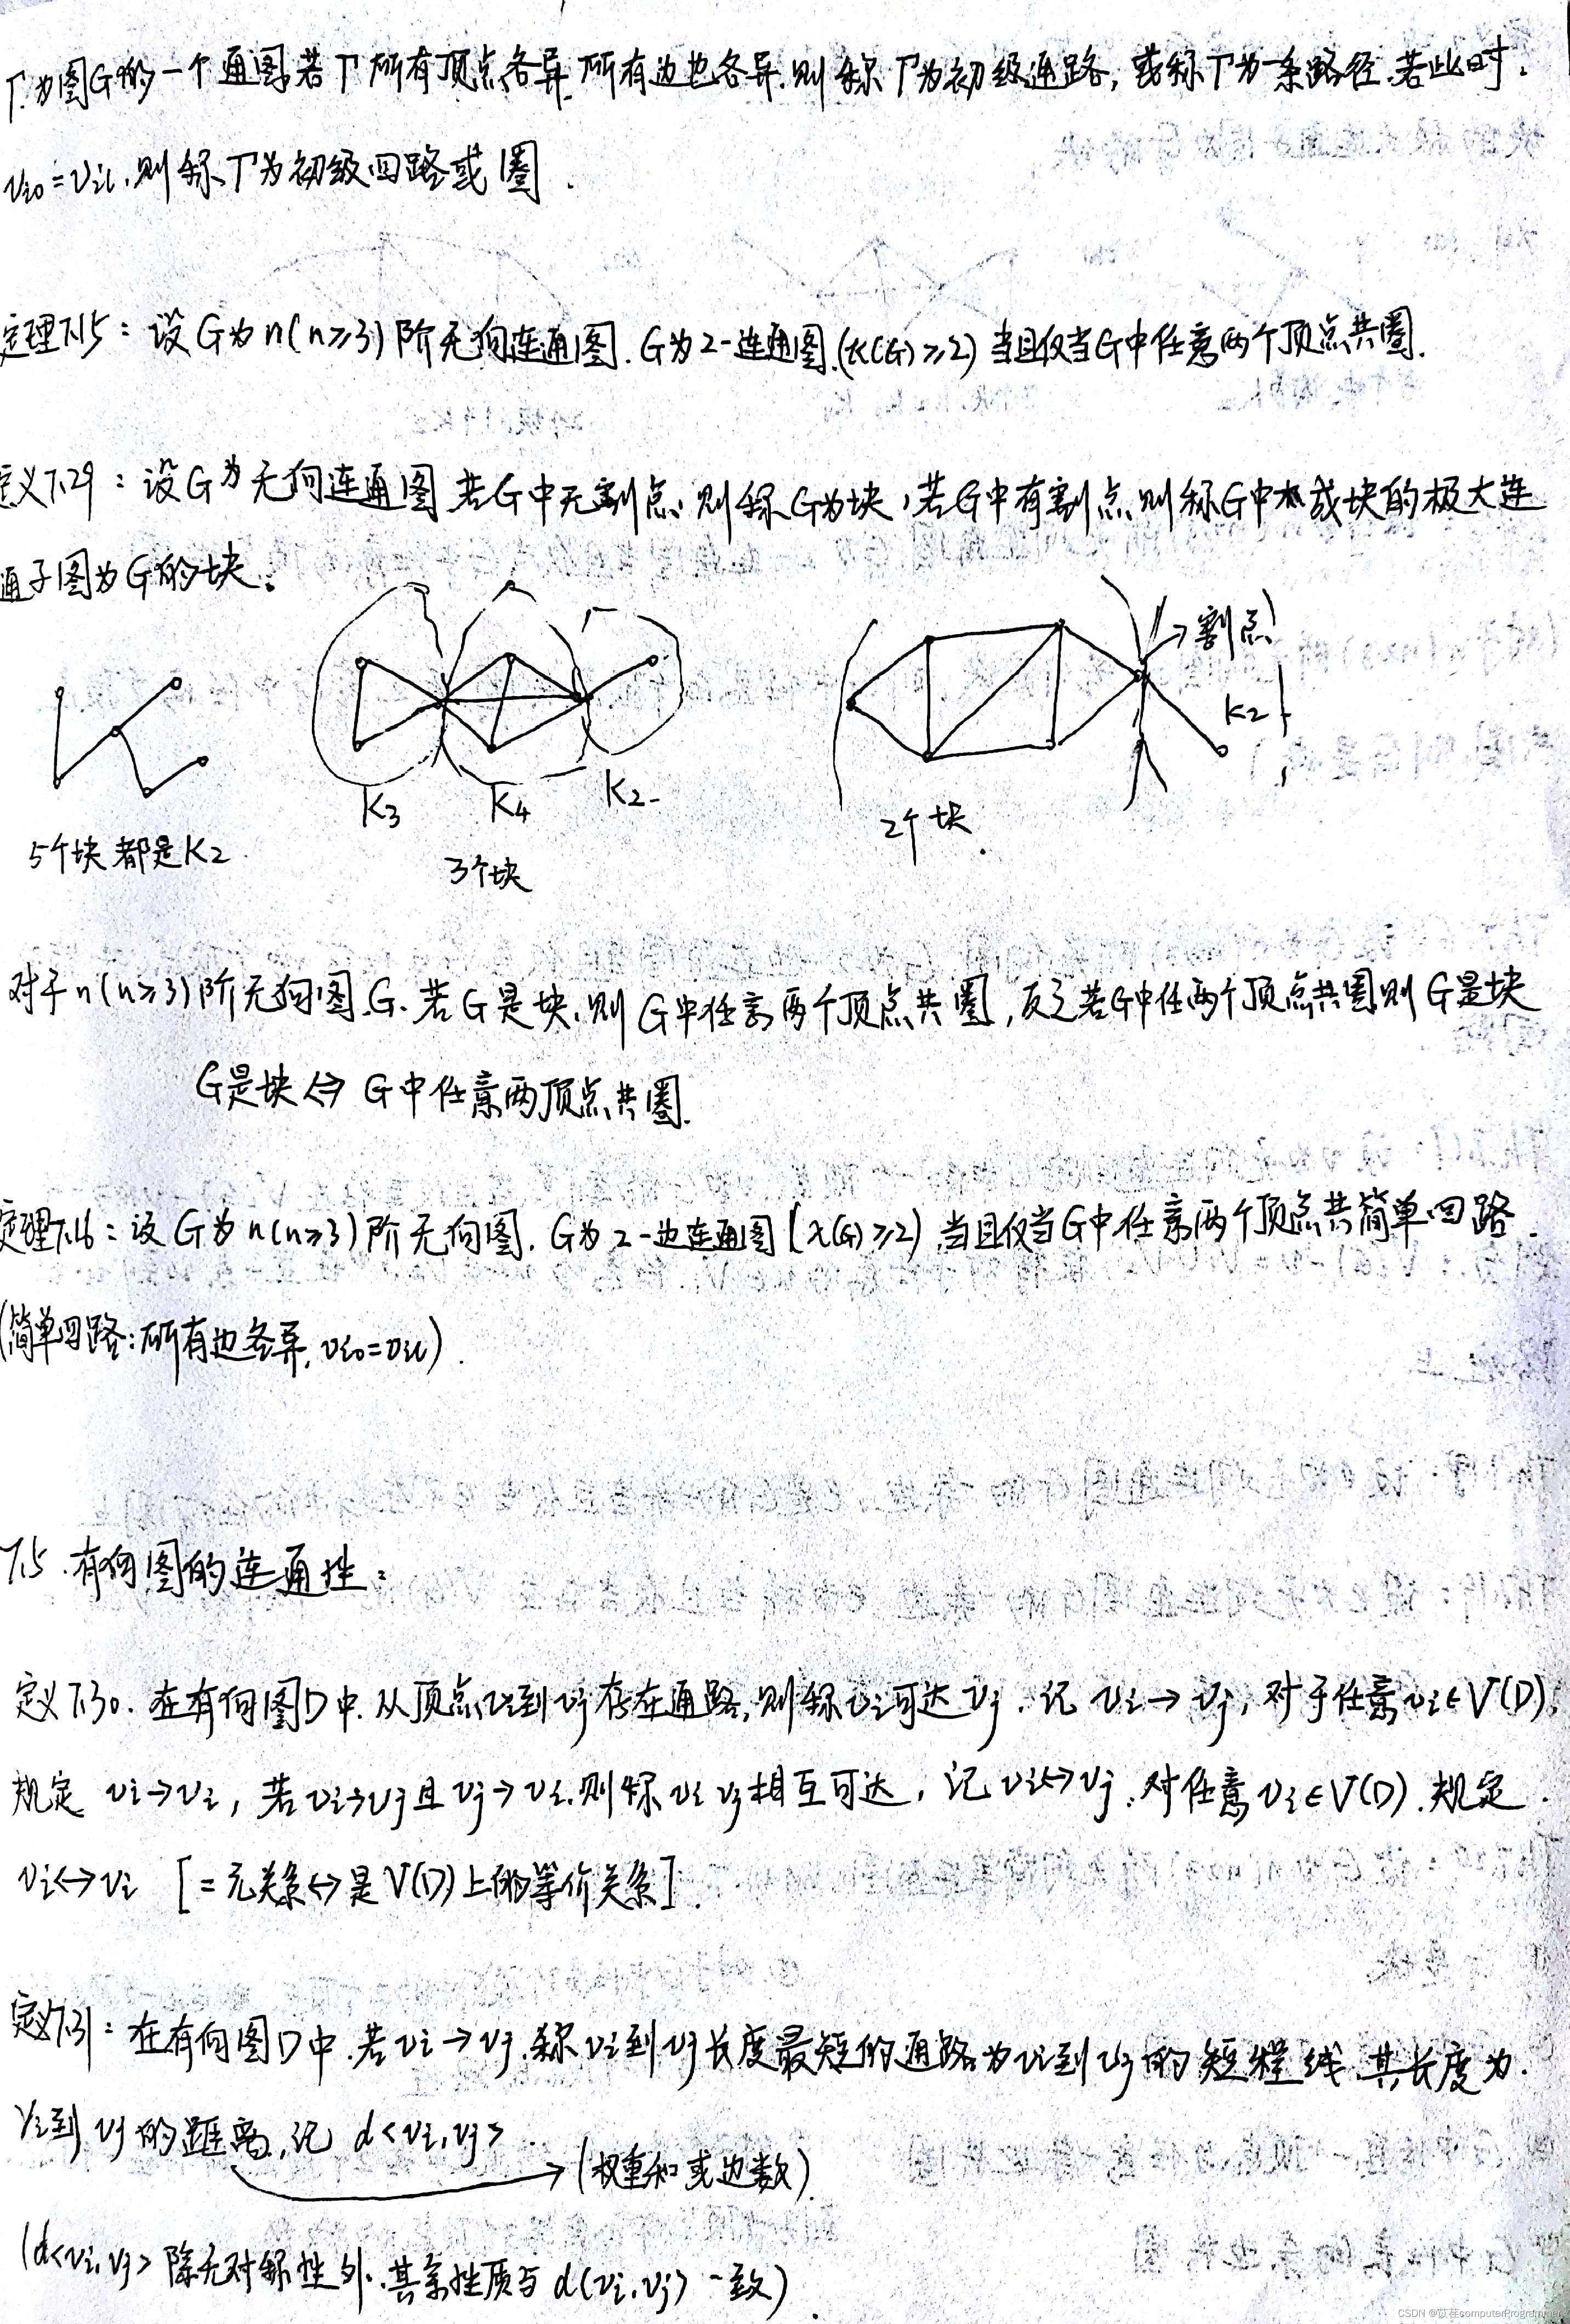 Γ为图G的一个通图,若Γ所有顶点各异,所有边也各异,则称Γ为初级通路,或称Γ为一条路径.若此时,
vi0=vil,则称Γ为初级回路或圈.
定理7.15:设G为n(n≥3)阶无向连通图.G为2-连通图.(κ(G)≥2)当且仅当G中任意两个顶点共圈.
定义7.29:设G为无向连通图,若G中无割点,则称G为块,若G中有割点,则称G中成块的极大连
通子图为G的块。
割点
K2
K3 K4 K2
2个块.
5个块都是K2
3个块
对于n(n≥3)阶无向图G.若G是块,则G中任意两个顶点共圈,反之若G中任两个顶点共圈则G是块
G是块⇔G中任意两顶点共圈.
定理7.16:设G为n(n≥3)阶无向图.G为2-边连通图[λ(G)≥2]当且仅当G中任意两个顶点共简单回路.
(简单回路:所有边各异,vi0=vil).
7.5.有向图的连通性:
定义7.30.在有向图D中.从顶点vi到vj存在通路,则称vi可达vj.记vi→vj,对于任意vi∈V(D),
规定vi→vi,若vi→vj且vj→vi.则称vi vj相互可达,记vi↔vj.对任意vi∈V(D).规定
vi↔vi [二元关系↔是V(D)上的等价关系].
定义7.31:在有向图D中.若vi→vj.称vi到vj长度最短的通路为vi到vj的短程线.其长度为.
vi到vj的距离,记d<vi,vj>
(权重和或边数)
(d<vi,vj>除无对称性外.其余性质与d(vi,vj)一致).
CSDN @苡荏computerProgrammer